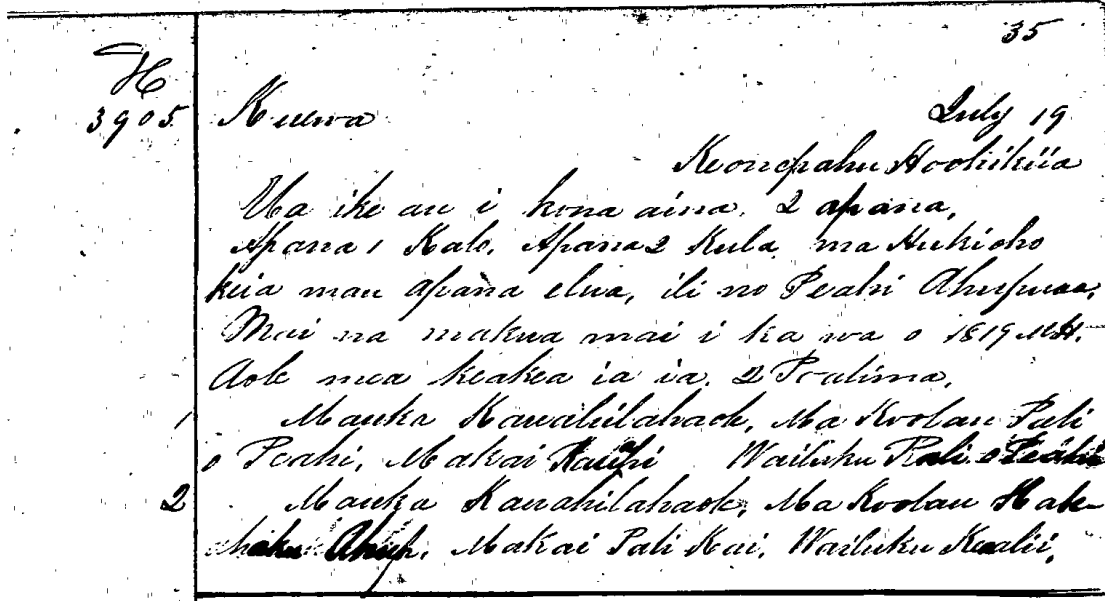 35
H
3905 Kuewa July 19
Keonepahu Hoohikiia
Ua ike au i kona aina. 2 apana,
Apana 1 Kalo. Apana 2 Kula, ma Hukioho
keia mau apana elua, ili no Peahi Ahupuaa,
Mai na makua mai i ka wa o 1819 MH.
Aole mea keakea ia ia. 2 Poalima,
1 Mauka Kawahilahaole, Ma Koolau Pali
o Peahi, Makai Wailuku Pali o Peahi
2 Mauka Kauahilahaole, Ma Koolau Hak-
Ahup. Makai Pali Kai, Wailuku